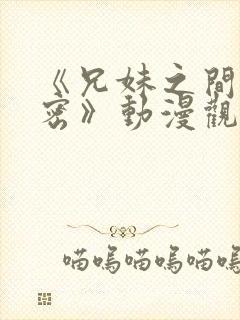 《兄妹之間
密》動漫觀
喵嗚喵嗚喵嗚